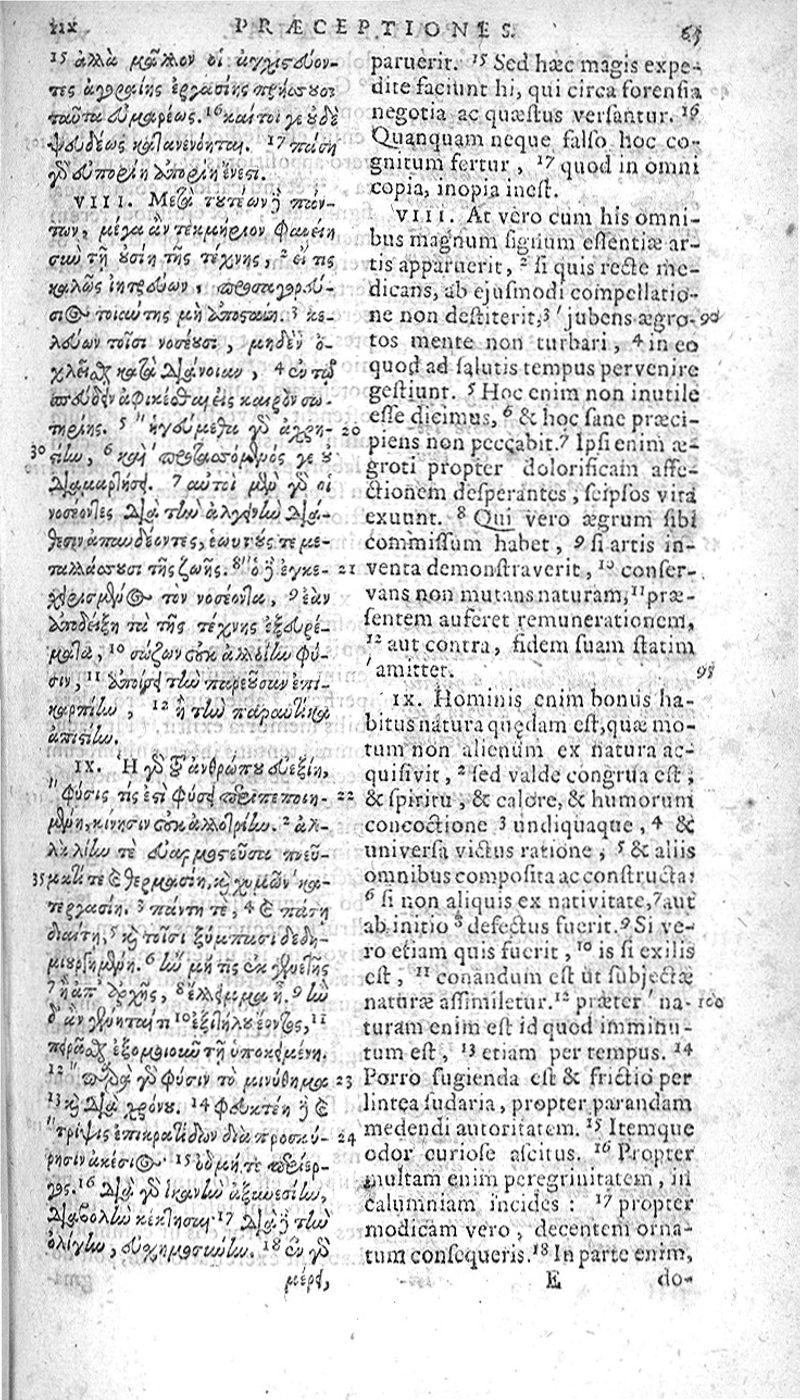 PRÆCEPTIONES. 65
15 ἀλλὰ μᾶλλον οἱ ἀγχιστεύον-
τες ἀγοραίης ἐργασίης πρήσσουσι
ταῦτα εὐμαρέως. 16 καίτοι γε οὐδὲ
ψευδέως κατανενόηται. 17 πάσῃ
γὰρ εὐπορίῃ ἀπορίη ἔνεστι.
VIII. Μετὰ τουτέων δὲ πάν-
των, μέγα ἂν τεκμήριον φανείη
σὺν τῇ οὐσίῃ τῆς τέχνης, 2 εἴ τις
καλῶς ἰητρεύων, προσαγορεύ-
σιος τοιαύτης μὴ ἀποσταίη. 3 κε-
λεύων τοῖσι νοσέουσι, μηδὲν ὀ-
χλεῖσθαι κατὰ διάνοιαν, 4 ἐν τῷ
σπεύδειν ἀφικέσθαι εἰς καιρὸν σω-
τηρίης. 5 "ἡγούμεθα γὰρ ἀχρη- 20
30 στίην, 6 καὶ προστασσόμενός γε οὐ
διαμαρτήσει. 7 αὐτοὶ μὲν γὰρ οἱ
νοσέοντες διὰ τὴν ἀλγεινὴν διά-
θεσιν ἀπαυδέοντες, ἑωυτούς τε με-
ταλλάσσουσι τῆς ζωῆς. 8 "ὁ δὲ ἐγκε- 21
χειρισμένος τὸν νοσέοντα, 9 ἐὰν
ἀποδείξῃ τὰ τῆς τέχνης ἐξευρέ-
ματα, 10 σώζων οὐκ ἀλλοιῶν φύ-
σιν, 11 ἀποίσει τὴν παρεοῦσαν ἐπι-
καρπίην, 12 ἢ τὴν παραυτίκα
ἀπιστίην.
IX. Ἡ γὰρ τοῦ ἀνθρώπου εὐεξίη,
"φύσις τίς ἐστι φύσει περιπεποιη- 22
μένη, κίνησιν οὐκ ἀλλοτρίην. 2 ἀλ-
λὰ λίην τε εὐαρμοστεῦσα πνεύ-
35 ματί τε καὶ θερμασίῃ, καὶ χυμῶν κα-
τεργασίῃ. 3 πάντη τὲ, 4 καὶ πάσῃ
διαίτῃ, 5 καὶ τοῖσι ξύμπασι δεδη-
μιουργημένη. 6 ἢν μή τις ἐκ γενετῆς
7 ἢ ἀπ' ἀρχῆς, 8 ἔλλειμμα ᾖ. 9 ἢν
δ' ἂν γένηταί τι 10 ἐξιτήλου ἐόντος, 11
πειρᾶσθαι ἐξομοιοῦν τῇ ὑποκειμένῃ.
12 "παρὰ γὰρ φύσιν τὸ μινύθημα 23
13 καὶ διὰ χρόνου. 14 φευκτέη δὲ καὶ
"τρίψις ἐπικρατίδων διὰ προσκύ- 24
ρησιν ἀκέσιος. 15 ὀδμή τε περίερ-
γος. 16 διὰ γὰρ ἱκανὴν ἀξυνεσίην,
διαβολὴν κέκτησαι. 17 διὰ δὲ τὴν
ὀλίγην, εὐσχημοσύνην. 18 ἐν γὰρ
μέρει,
paruerit. 15 Sed hæc magis expe-
dite faciunt hi, qui circa forensia
negotia ac quæstus versantur. 16
Quanquam neque falso hoc co-
gnitum fertur, 17 quod in omni
copia, inopia inest.
VIII. At vero cum his omni-
bus magnum signum essentiæ ar-
tis apparuerit, 2 si quis recte me-
dicans, ab ejusmodi compellatio-
ne non destiterit, 3 'jubens ægro- 90
tos mente non turbari, 4 in eo
quod ad salutis tempus pervenire
gestiunt. 5 Hoc enim non inutile
esse dicimus, 6 & hoc sane præci-
piens non peccabit. 7 Ipsi enim æ-
groti propter dolorificam affe-
ctionem desperantes, seipsos vita
exuunt. 8 Qui vero ægrum sibi
commissum habet, 9 si artis in-
venta demonstraverit, 10 conser-
vans non mutans naturam, 11 præ-
sentem auferet remunerationem,
12 aut contra, fidem suam statim
'amittet. 95
IX. Hominis enim bonus ha-
bitus natura quędam est, quæ mo-
tum non alienum ex natura ac-
quisivit, 2 sed valde congrua est,
& spiritu, & calore, & humorum
concoctione 3 undiquaque, 4 &
universa victus ratione, 5 & aliis
omnibus composita ac constructa:
6 si non aliquis ex nativitate, 7 aut
ab initio 8 defectus fuerit. 9 Si ve-
ro etiam quis fuerit, 10 is si exilis
est, 11 conandum est ut subjectæ
naturæ assimiletur. 12 præter 'na- 100
turam enim est id quod imminu-
tum est, 13 etiam per tempus. 14
Porro fugienda est & frictio per
lintea sudaria, propter parandam
medendi autoritatem. 15 Itemque
odor curiose ascitus. 16 Propter
multam enim peregrinitatem, in
calumniam incides: 17 propter
modicam vero, decentem orna-
tum consequeris. 18 In parte enim,
E do-